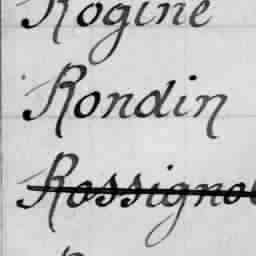 Rogine
Rondin
Rossignol